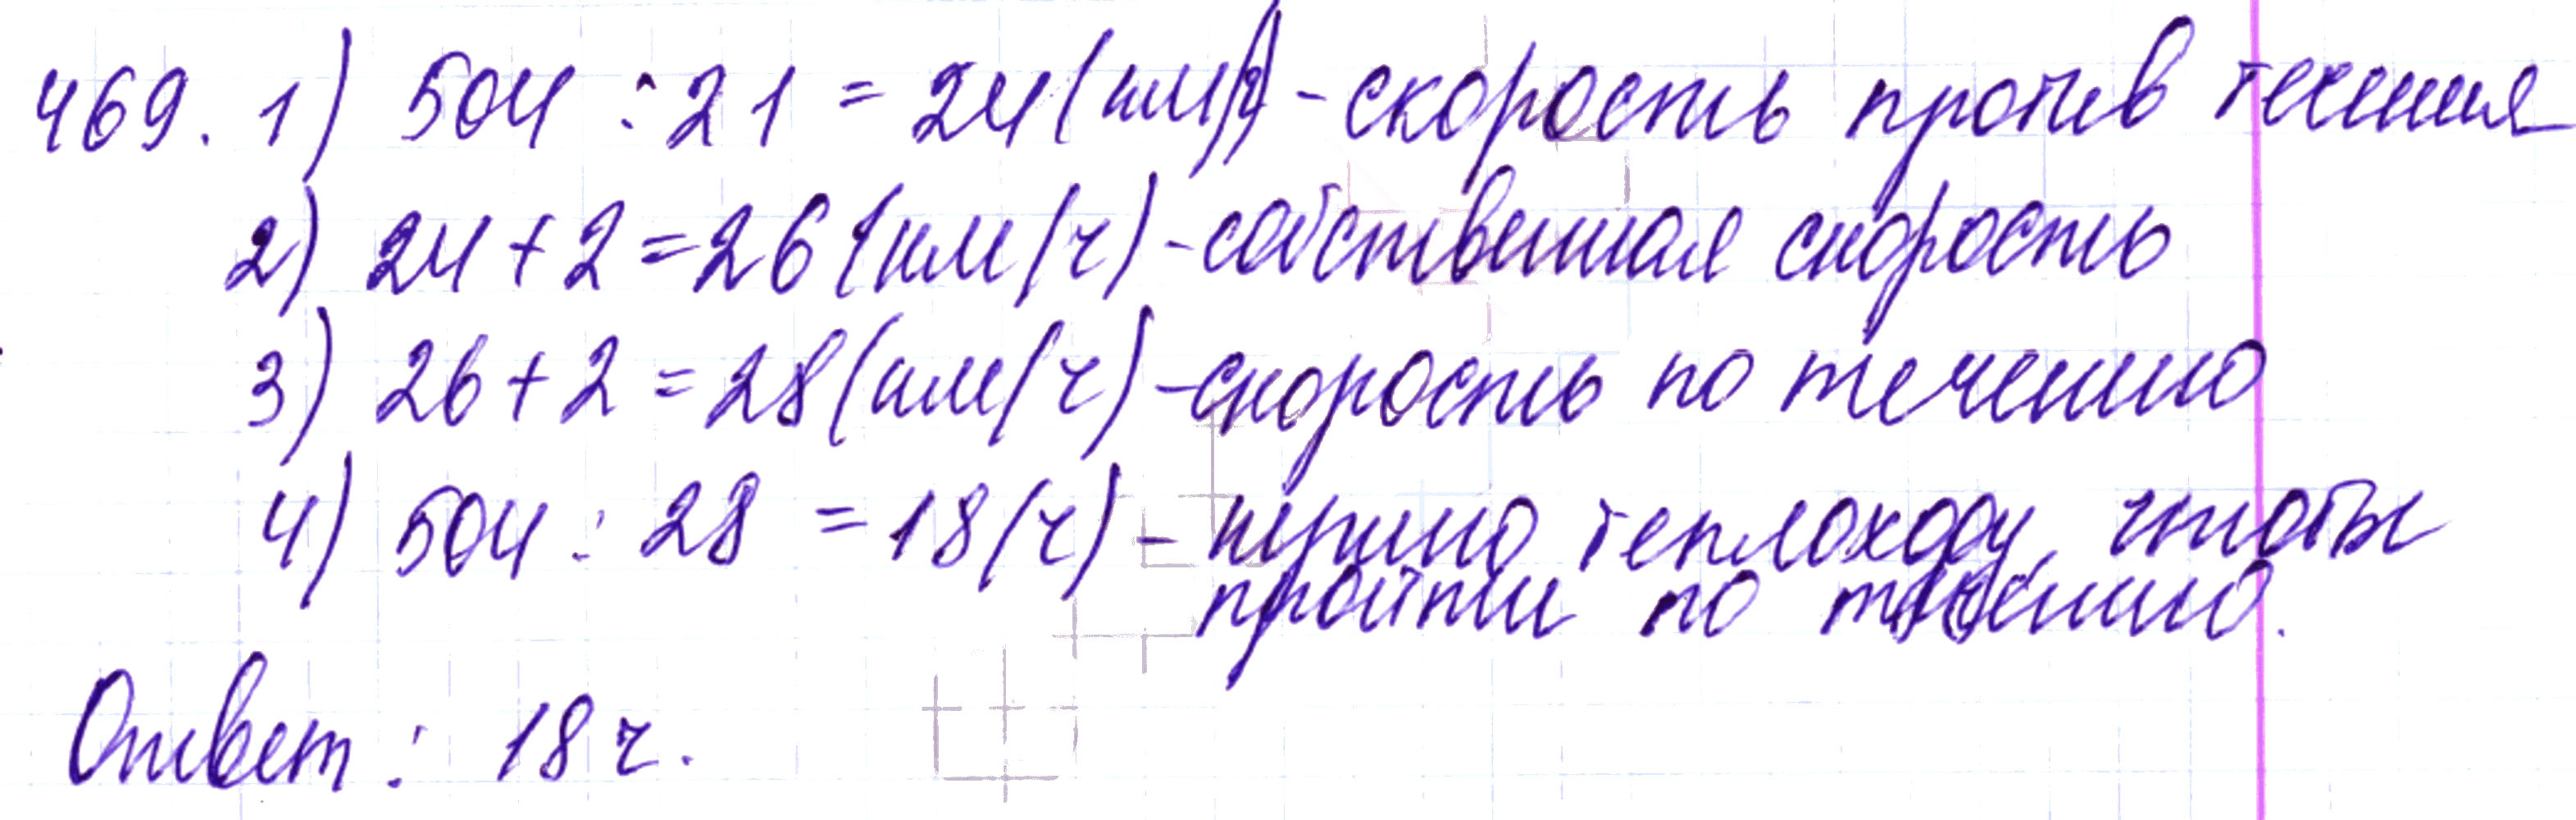 469. 1) 504 : 21 = 24 (км/ч) - скорость против течения
2) 24 + 2 = 26 (км/ч) - собственная скорость
3) 26 + 2 = 28 (км/ч) - скорость по течению
4) 504 : 28 = 18 (ч) - нужно теплоходу, чтобы
пройти по течению.
Ответ: 18 ч.